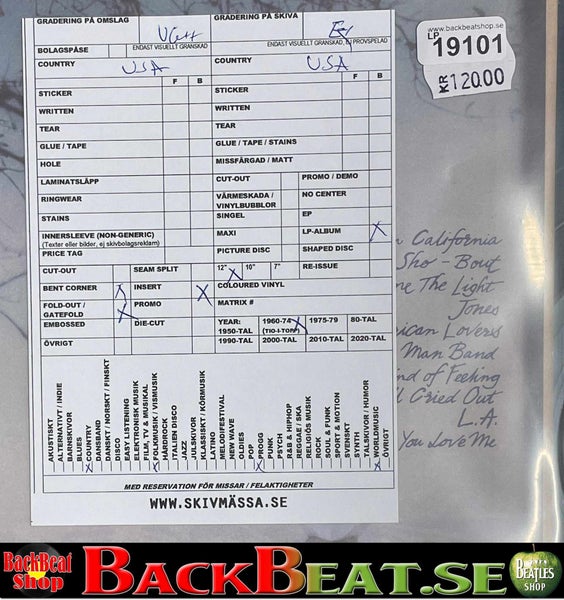 GRADERING PÅ OMSLAG
VG++
GRADERING PÅ SKIVA
Ex
ENDAST VISUELLT GRANSKAD
ENDAST VISUELLT GRANSKAD, EJ PROVSPELAD
www.backbeatshop.se
LP
19101
KR120.00
BOLAGSPÅSE
COUNTRY
USA
COUNTRY
USA
F B
F B
STICKER
WRITTEN
TEAR
GLUE / TAPE
HOLE
LAMINATSLÄPP
RINGWEAR
STAINS
INNERSLEEVE (NON-GENERIC)
(Texter eller bilder, ej skivbolagsreklam)
PRICE TAG
CUT-OUT
SEAM SPLIT
BENT CORNER X
INSERT X
FOLD-OUT / GATEFOLD X
PROMO
EMBOSSED
DIE-CUT
ÖVRIGT
STICKER
WRITTEN
TEAR
GLUE / TAPE / STAINS
MISSFÄRGAD / MATT
CUT-OUT
PROMO / DEMO
VÄRMESKADA / VINYLBUBBLOR
NO CENTER
SINGEL
EP
MAXI
LP-ALBUM X
PICTURE DISC
SHAPED DISC
12" X 10" 7"
RE-ISSUE
COLOURED VINYL
MATRIX #
YEAR:
1950-TAL
1960-74 X
(TIO-I-TOPP)
1975-79
80-TAL
1990-TAL
2000-TAL
2010-TAL
2020-TAL
AKUSTISKT
ALTERNATIVT / INDIE
BARNSKIVOR
BLUES
COUNTRY X
DANSBAND
DANSKT / NORSKT / FINSKT
DISCO
EASY LISTENING
ELEKTRONISK MUSIK
FILM, TV & MUSIKAL
FOLKMUSIK / VISMUSIK X
HÅRDROCK
ITALIEN DISCO
JAZZ
JULSKIVOR
KLASSISKT / KÖRMUSIK
LATINO
MELODIFESTIVAL
NEW WAVE
OLDIES
POP
PROGG X
PUNK
PSYCH
R&B & HIPHOP
REGGAE / SKA
RELIGIÖS MUSIK
ROCK
SOUL & FUNK
SPORT & MOTION
SVENSKT
SYNTH
TALSKIVOR / HUMOR
WORLDMUSIC
ÖVRIGT
X
MED RESERVATION FÖR MISSAR / FELAKTIGHETER
WWW.SKIVMÄSSA.SE
California
Sho-Bout
The Light
Jones
Lovers
Man Band
of Feeling
Cried Out
L.A.
You Love Me
BackBeat
Shop
BACKBEAT.SE
BEATLES
SHOP